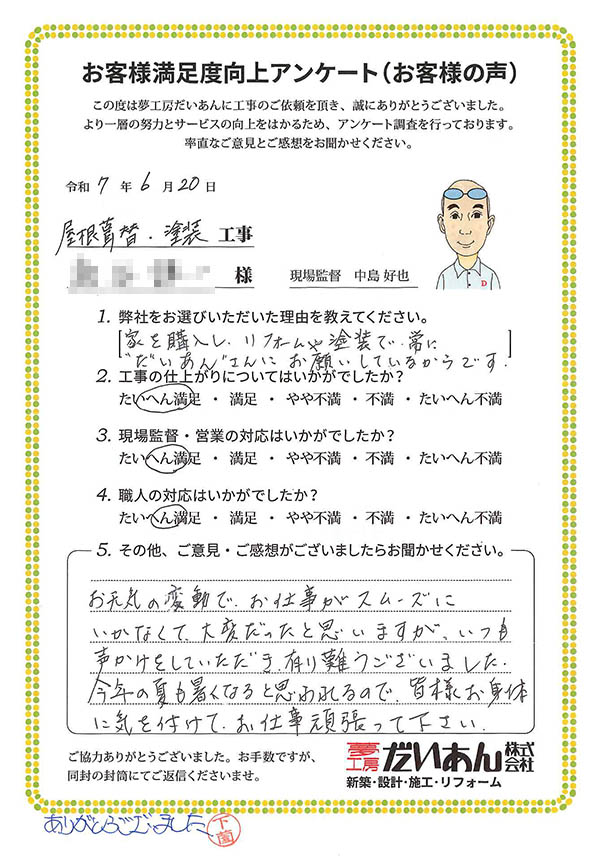 お客様満足度向上アンケート(お客様の声)
この度は夢工房だいあんに工事のご依頼を頂き、誠にありがとうございました。
より一層の努力とサービスの向上をはかるため、アンケート調査を行っております。
率直なご意見とご感想をお聞かせください。
令和 7 年 6 月 20 日
屋根葺替・塗装 工事
様
現場監督 中島 好也
D
1. 弊社をお選びいただいた理由を教えてください。
家を購入し、リフォームや塗装で、常に
"だいあん"さんにお願いしているからです.
2. 工事の仕上がりについてはいかがでしたか?
たいへん満足 ・ 満足 ・ やや不満 ・ 不満 ・ たいへん不満
3. 現場監督・営業の対応はいかがでしたか?
たいへん満足 ・ 満足 ・ やや不満 ・ 不満 ・ たいへん不満
4. 職人の対応はいかがでしたか?
たいへん満足 ・ 満足 ・ やや不満 ・ 不満 ・ たいへん不満
5. その他、ご意見・ご感想がございましたらお聞かせください。
お天気の変動で、お仕事がスムーズに
いかなくて、大変だったと思いますが、いつも
声かけをしていただき、有り難うございました.
今年の夏も暑くなると思われるので、皆様お身体
に気を付けて、お仕事頑張って下さい.
ご協力ありがとうございました。お手数ですが、
同封の封筒にてご返信くださいませ。
夢工房 だいあん 株式会社
新築・設計・施工・リフォーム
ありがとうございました、 下薗